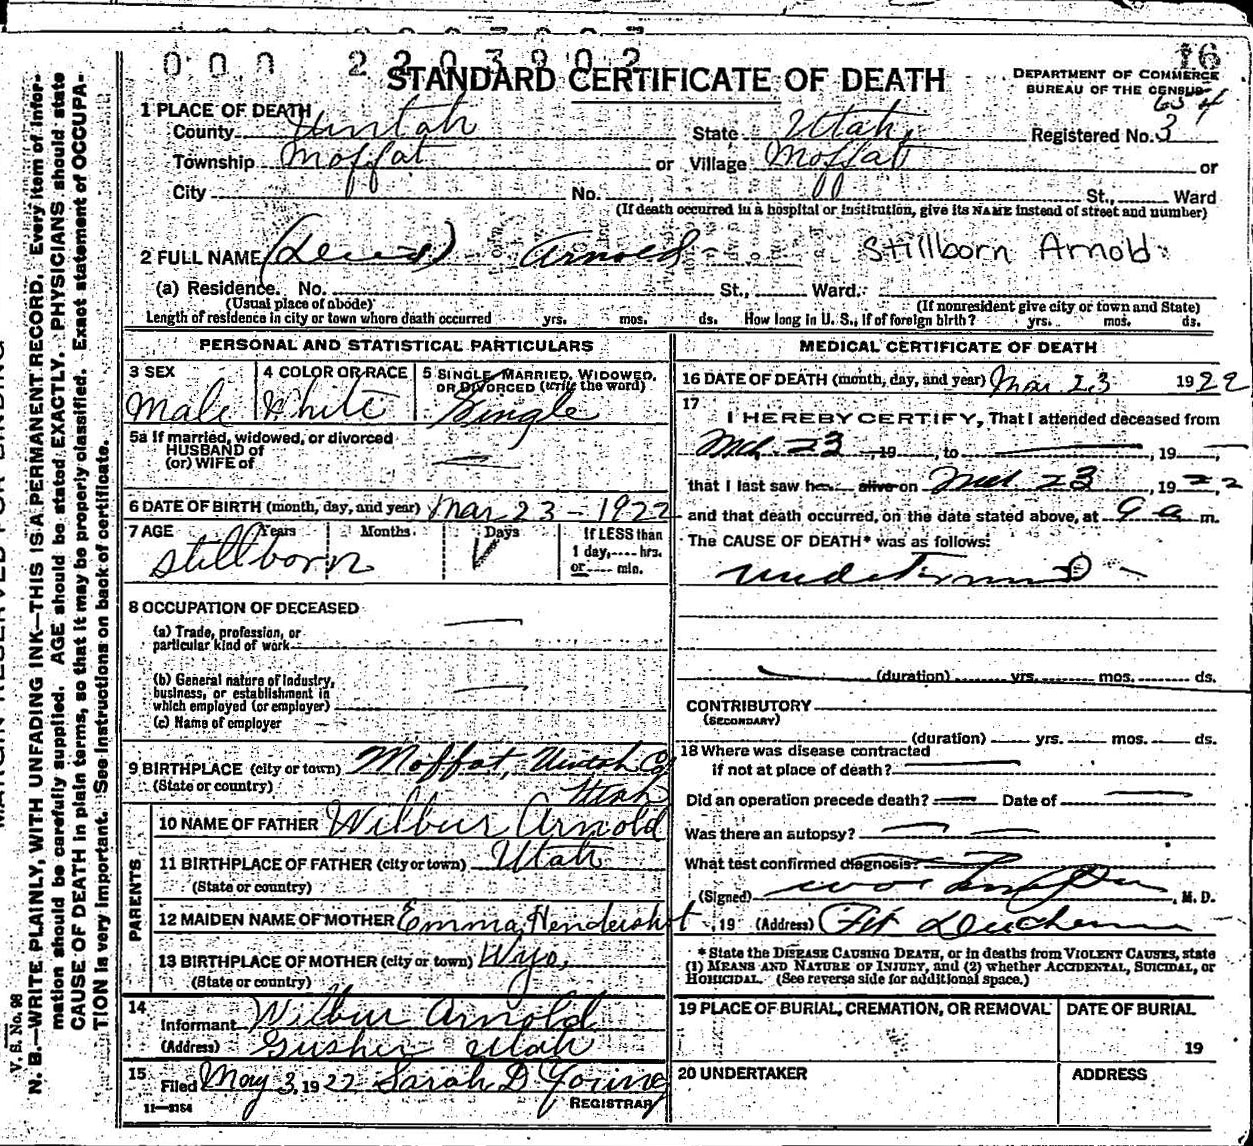 000 2203902
16
STANDARD CERTIFICATE OF DEATH
DEPARTMENT OF COMMERCE
BUREAU OF THE CENSUS
1 PLACE OF DEATH
County Uintah State Utah, Registered No. 3
Township Moffat or Village Moffat or
City No. St., Ward
(If death occurred in a hospital or institution, give its NAME instead of street and number)
2 FULL NAME Arnold Stillborn Arnold
(a) Residence. No. St., Ward.
(Usual place of abode) (If nonresident give city or town and State)
Length of residence in city or town where death occurred yrs. mos. ds. How long in U. S., if of foreign birth? yrs. mos. ds.
PERSONAL AND STATISTICAL PARTICULARS
3 SEX 4 COLOR OR RACE 5 SINGLE, MARRIED, WIDOWED, OR DIVORCED (write the word)
Male White Single
5a If married, widowed, or divorced
HUSBAND of
(or) WIFE of
6 DATE OF BIRTH (month, day, and year) Mar 23 - 1922
7 AGE Years Months Days If LESS than
1 day, hrs.
or min.
Stillborn
8 OCCUPATION OF DECEASED
(a) Trade, profession, or
particular kind of work
(b) General nature of industry,
business, or establishment in
which employed (or employer)
(c) Name of employer
9 BIRTHPLACE (city or town) Moffat, Uintah Co
(State or country) Utah
PARENTS
10 NAME OF FATHER Wilbur Arnold
11 BIRTHPLACE OF FATHER (city or town) Utah
(State or country)
12 MAIDEN NAME OF MOTHER Emma Hendershot
13 BIRTHPLACE OF MOTHER (city or town) Wyo.
(State or country)
14
Informant Wilbur Arnold
(Address) Gusher Utah
15
Filed May 3, 1922 Sarah D Young
REGISTRAR
11-3184
MEDICAL CERTIFICATE OF DEATH
16 DATE OF DEATH (month, day, and year) Mar 23 1922
17
I HEREBY CERTIFY, That I attended deceased from
Mch 23, 19 , to , 19
that I last saw h alive on Mch 23, 1922,
and that death occurred, on the date stated above, at 9 a m.
The CAUSE OF DEATH* was as follows:
undetermined
(duration) yrs. mos. ds.
CONTRIBUTORY
(SECONDARY)
(duration) yrs. mos. ds.
18 Where was disease contracted
if not at place of death?
Did an operation precede death? Date of
Was there an autopsy?
What test confirmed diagnosis?
(Signed) , M. D.
, 19 (Address) Ft Duchesne
* State the DISEASE CAUSING DEATH, or in deaths from VIOLENT CAUSES, state
(1) MEANS AND NATURE OF INJURY, and (2) whether ACCIDENTAL, SUICIDAL, or
HOMICIDAL. (See reverse side for additional space.)
19 PLACE OF BURIAL, CREMATION, OR REMOVAL DATE OF BURIAL
19
20 UNDERTAKER ADDRESS
V. S. No. 98
N. B.—WRITE PLAINLY, WITH UNFADING INK—THIS IS A PERMANENT RECORD. Every item of infor-
mation should be carefully supplied. AGE should be stated EXACTLY. PHYSICIANS should state
CAUSE OF DEATH in plain terms, so that it may be properly classified. Exact statement of OCCUPA-
TION is very important. See instructions on back of certificate.